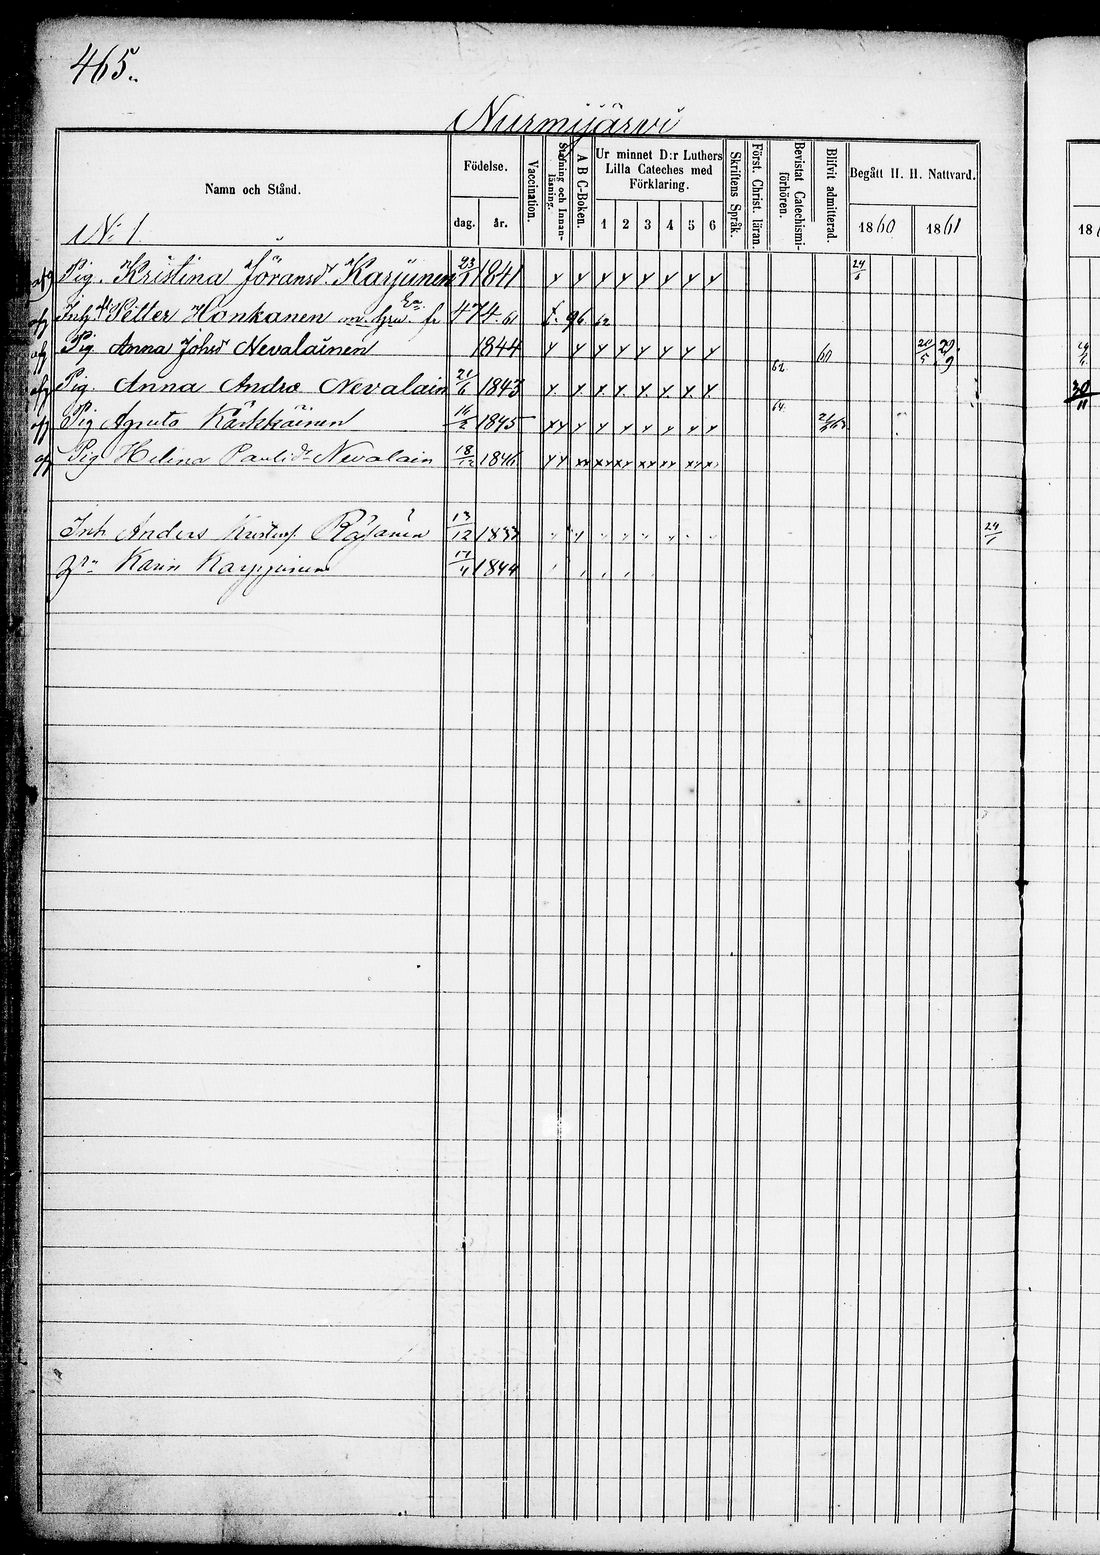 465.
Nurmijärvi
Namn och Stånd.
Födelse.
dag. år.
Vaccination.
Stafning och Innan-läsning.
A B C-Boken.
Ur minnet D:r Luthers Lilla Cateches med Förklaring.
1 2 3 4 5 6
Skriftens Språk.
Först. Christ. läran.
Bevistat Catechismi-förhören.
Blifvit admitterad.
Begått H. H. Nattvard.
1860 1861
No 1.
Pig. Kristina Jöransdr Karjunen 23/1 1841 x x x x x x x x 24/6
Petter Honkanen 474. 61 f. 96 62
Pig Anna Johsd Nevalainen 1844 x x x x x x x x 60 20/5 29/9
Pig. Anna Andrs Nevalain 21/6 1843 x x x x x x x x 62
Pig Agneta Kärkkäinen 16/2 1845 xx x x x x x x x 64
Pig Helena Paulsdr Nevalain 18/12 1846 xx xx xx xx xx xx xx
Inh Anders Kristers. Räsänen 13/12 1833 24/1
Karin Karppinen 17/11 1844